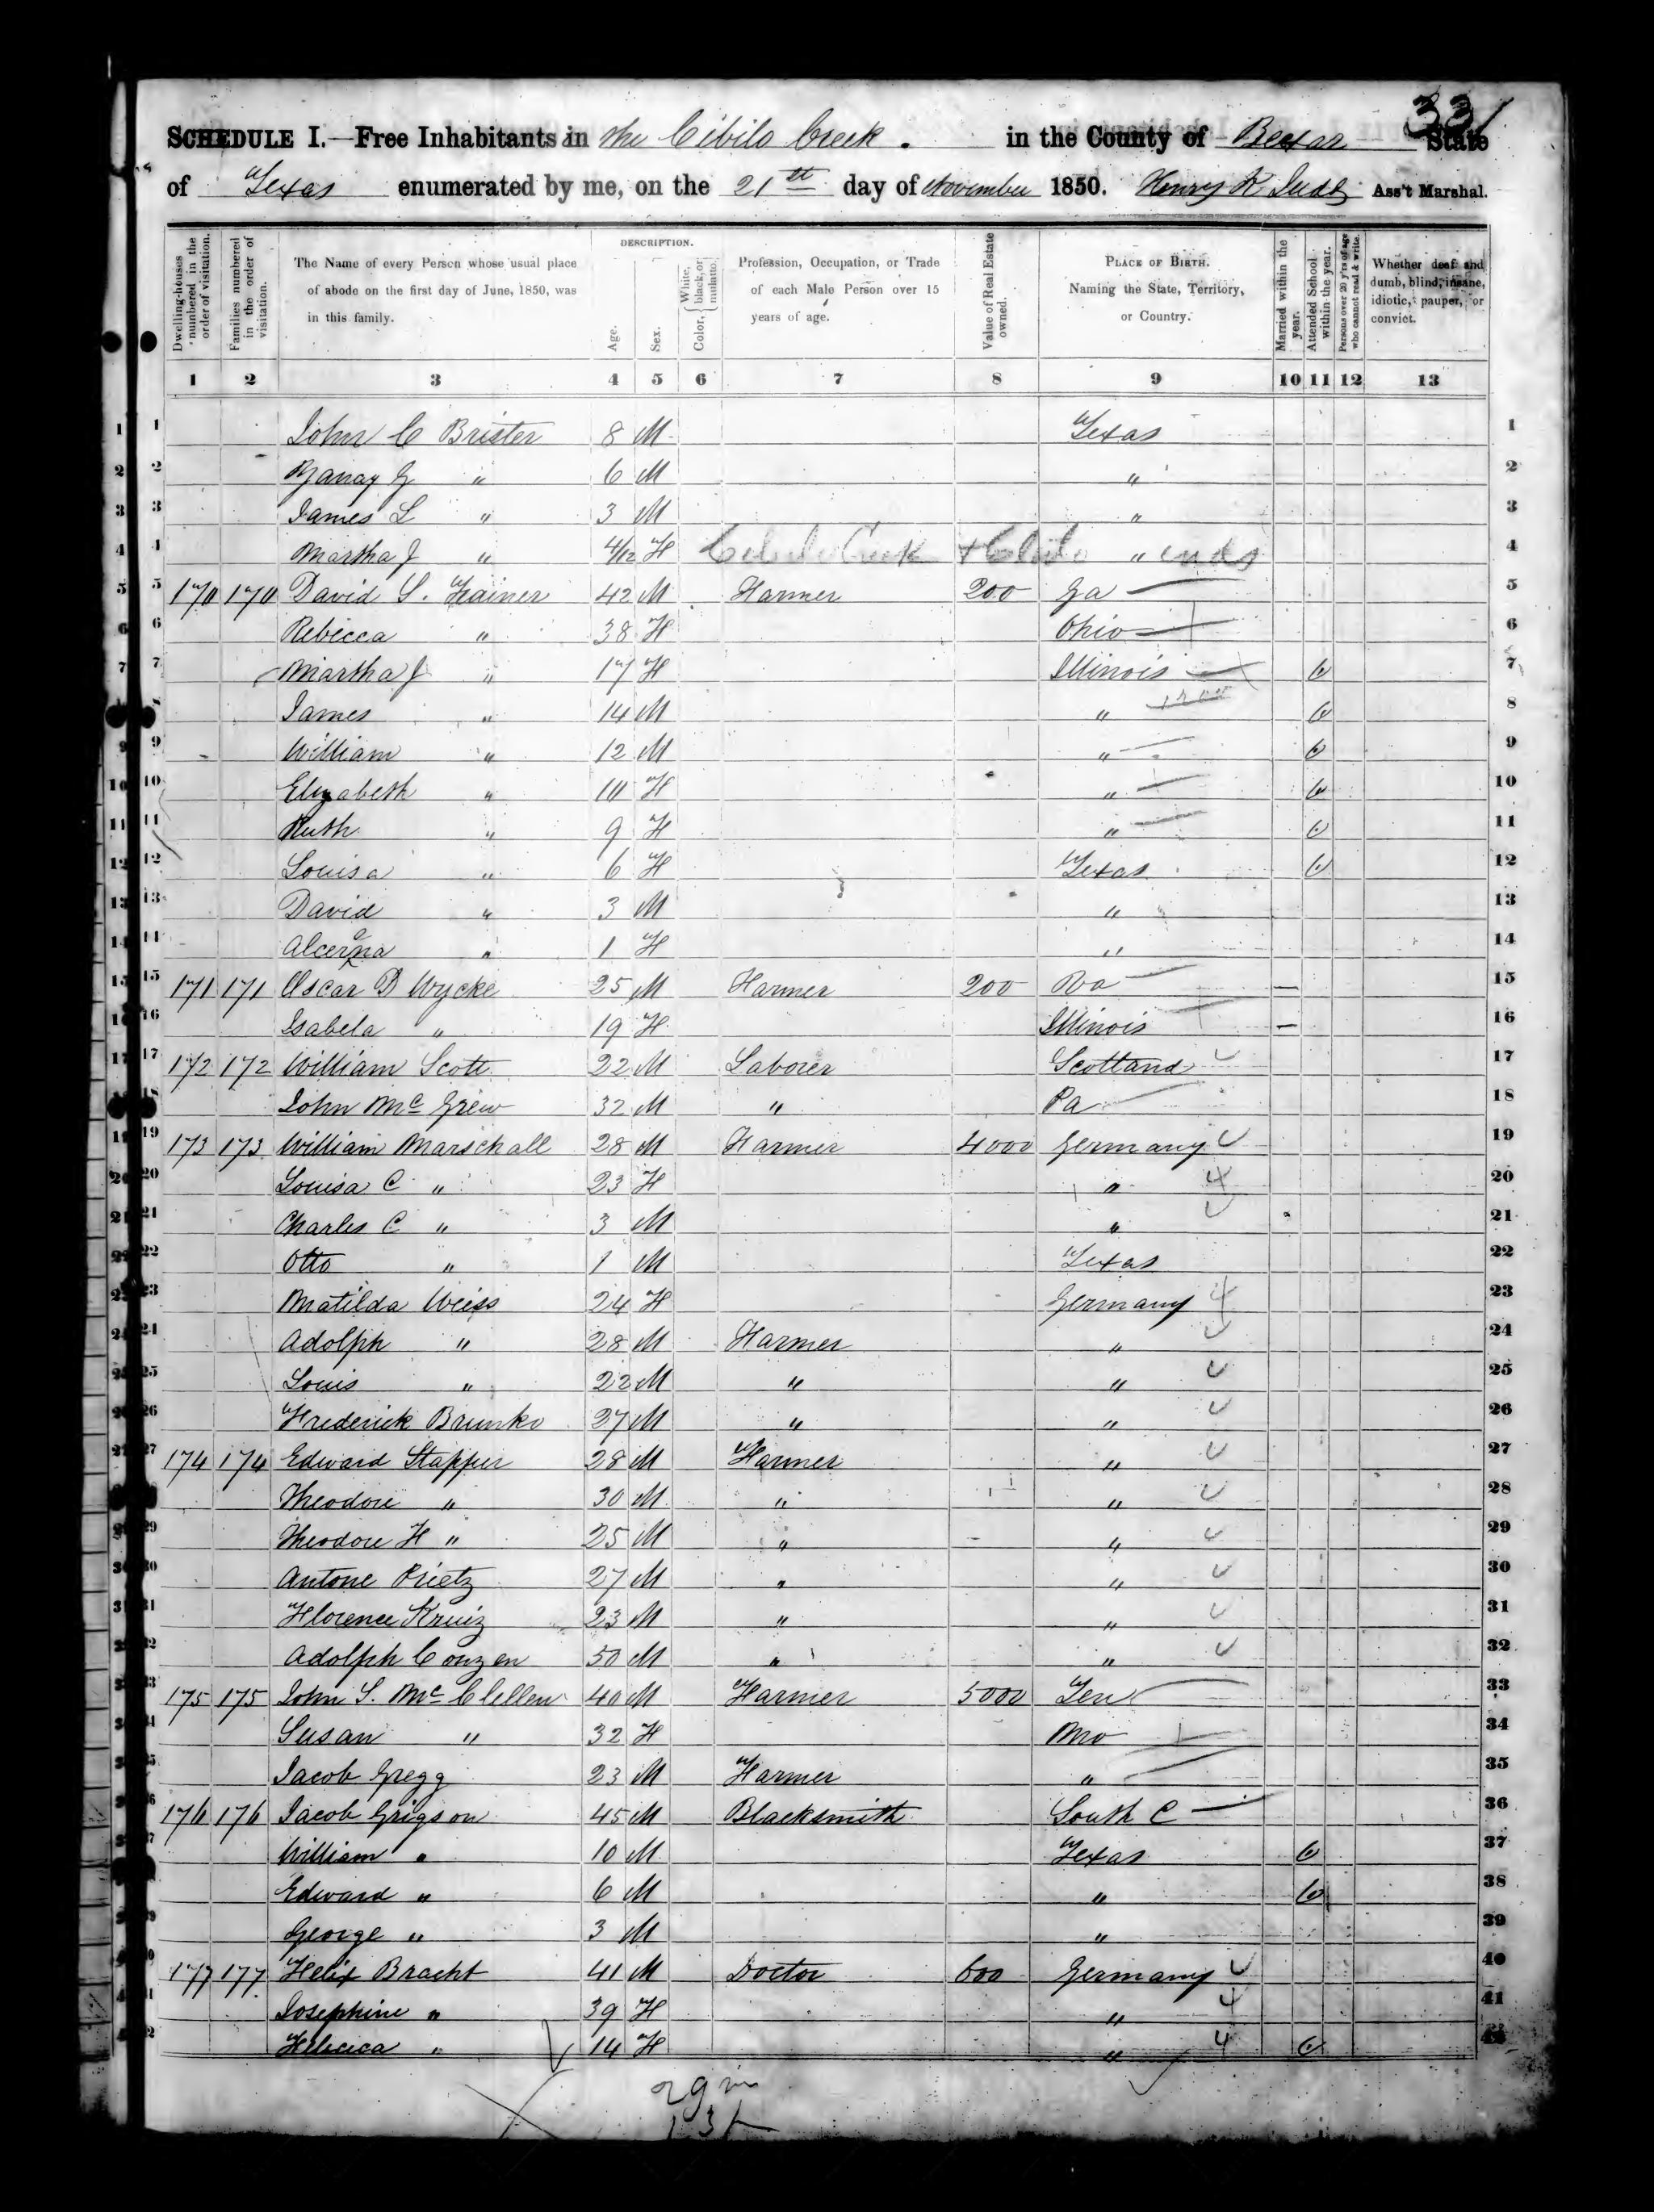 331
SCHEDULE I.—Free Inhabitants in the Cibilo Creek. in the County of Bexar State
of Texas enumerated by me, on the 21st day of November 1850. Henry K Judd Ass't Marshal.
Dwelling-houses numbered in the order of visitation.
Families numbered in the order of visitation.
The Name of every Person whose usual place of abode on the first day of June, 1850, was in this family.
DESCRIPTION.
Age.
Sex.
Color, White, black, or mulatto.
Profession, Occupation, or Trade of each Male Person over 15 years of age.
Value of Real Estate owned.
PLACE OF BIRTH. Naming the State, Territory, or Country.
Married within the year.
Attended School within the year.
Persons over 20 y'rs of age who cannot read & write.
Whether deaf and dumb, blind, insane, idiotic, pauper, or convict.
1 2 3 4 5 6 7 8 9 10 11 12 13
1 John C Brister 8 M Texas 1
2 G " 6 M " 2
3 James L " 3 M " 3
4 Martha J " 4/12 F Cibilo Creek " ends 4
5 170 170 David S. Hainer 42 M Farmer 200 Ga 5
6 Rebicca " 38 F Ohio 6
7 Martha J " 17 F Illinois 7
8 James " 14 M " 8
9 William " 12 M " 9
10 Elizabeth " 10 F " 10
11 Ruth " 9 F " 11
12 Louisa " 6 F Texas 12
13 David " 3 M " 13
14 " 1 F " 14
15 171 171 Oscar D Wycke 25 M Farmer 200 Va 15
16 Isabela " 19 F Illinois 16
17 172 172 William Scott 22 M Laborer Scottand 17
18 John Mc Grew 32 M " Pa 18
19 173 173 William Marschall 28 M Farmer 4000 Germany 19
20 Louisa C " 23 F " 20
21 Charles C " 3 M " 21
22 Otto " 1 M Texas 22
23 Matilda Weiss 24 F Germany 23
24 Adolph " 28 M Farmer " 24
25 Louis " 22 M " " 25
26 Frederick Brunko 27 M " " 26
27 174 174 Edward Stapper 28 M Farmer " 27
28 Theodore " 30 M " " 28
29 Theodore H " 25 M " " 29
30 Antone Prietz 27 M " " 30
31 Florence Kruiz 23 M " " 31
32 Adolph Conzen 50 M " " 32
33 175 175 John S. Mc Clellen 40 M Farmer 5000 Ten 33
34 Susan " 32 F Mo 34
35 Jacob Gregg 23 M Farmer " 35
36 176 176 Jacob Grigson 45 M Blacksmith South C 36
37 William " 10 M Texas 37
38 Edward " 6 M " 38
39 George " 3 M " 39
40 177 177 Felix Bracht 41 M Doctor 600 Germany 40
41 Josephine " 39 F " 41
42 " 14 F " 42
29 m
13 f